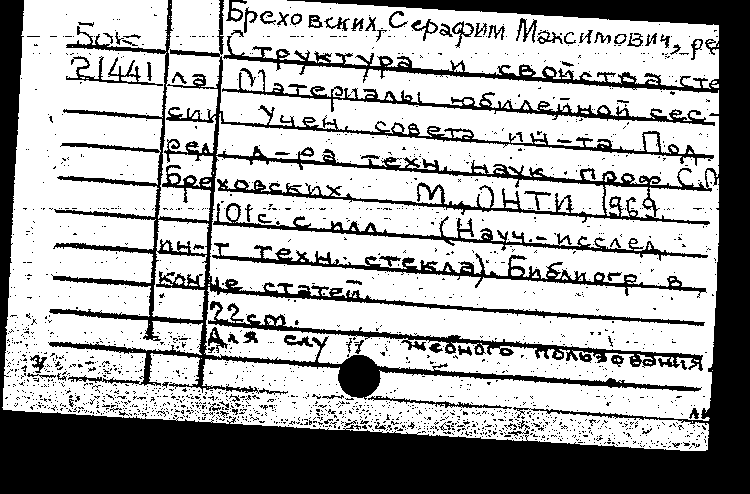 Бреховских, Серафим Максимович, ре
Бок Структура и свойства сте
21441 ла. Материалы юбилейной сес-
сии Учен. совета ин-та. Под
ред. д-ра техн. наук проф. С.М
Бреховских. М., ОНТИ, 1969.
101с. с илл. (Науч.-исслед.
ин-т техн. стекла). Библиогр. в
конце статей.
22см.
Для служебного пользования.